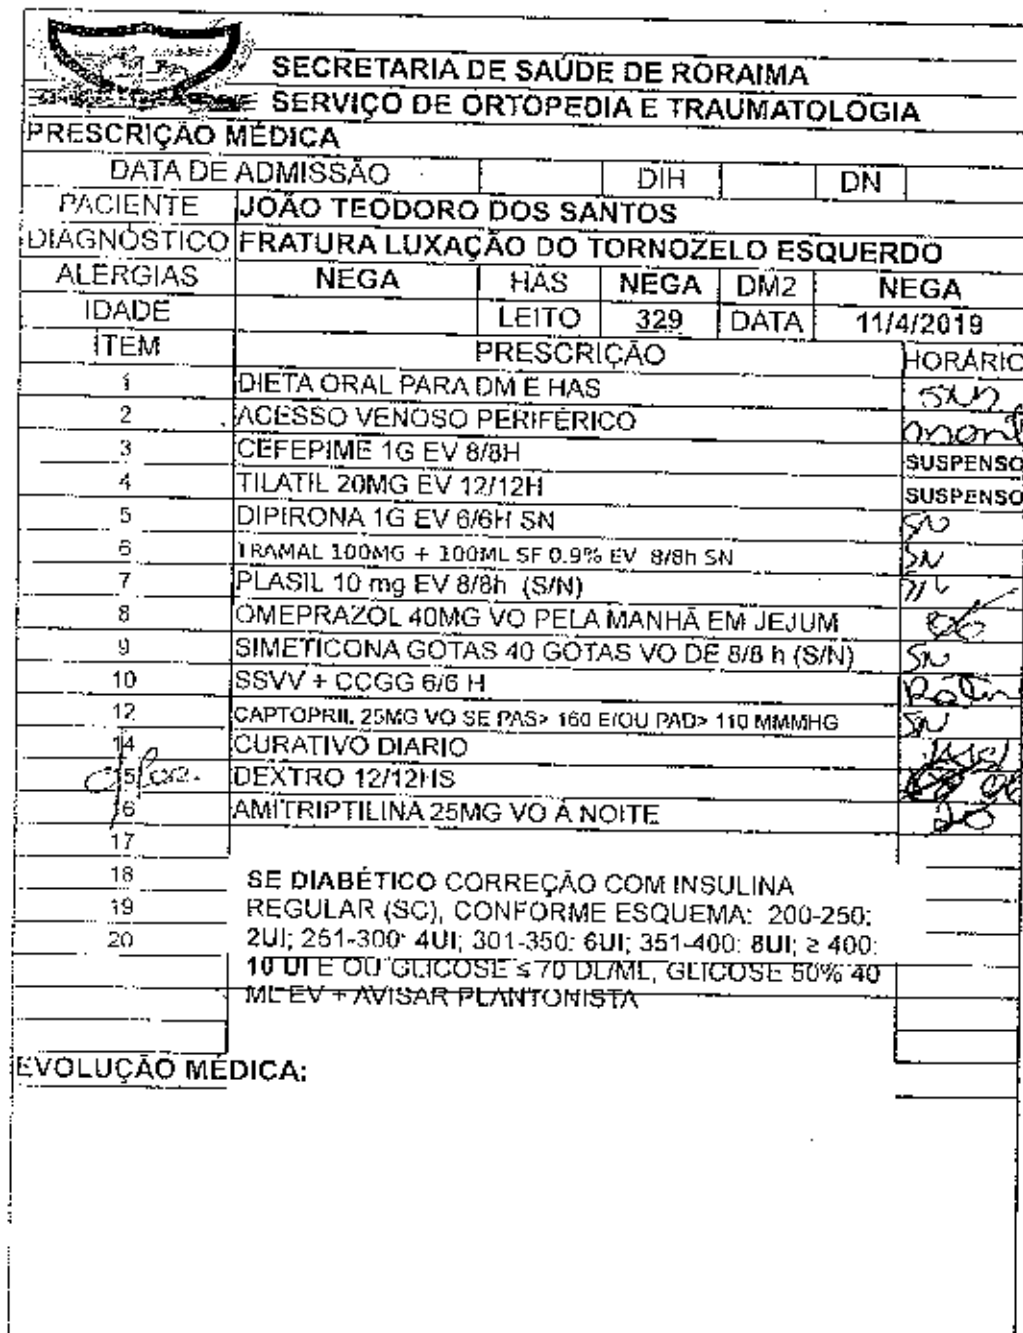 SECRETARIA DE SAÚDE DE RORAIMA
SERVIÇO DE ORTOPEDIA E TRAUMATOLOGIA
PRESCRIÇÃO MÉDICA
DATA DE ADMISSÃO DIH DN
PACIENTE JOÃO TEODORO DOS SANTOS
DIAGNÓSTICO FRATURA LUXAÇÃO DO TORNOZELO ESQUERDO
ALERGIAS NEGA HAS NEGA DM2 NEGA
IDADE LEITO 329 DATA 11/4/2019
ITEM PRESCRIÇÃO HORÁRIO
1 DIETA ORAL PARA DM E HAS
2 ACESSO VENOSO PERIFÉRICO
3 CEFEPIME 1G EV 8/8H SUSPENSO
4 TILATIL 20MG EV 12/12H SUSPENSO
5 DIPIRONA 1G EV 6/6H SN SN
6 TRAMAL 100MG + 100ML SF 0.9% EV 8/8h SN SN
7 PLASIL 10 mg EV 8/8h (S/N)
8 OMEPRAZOL 40MG VO PELA MANHÃ EM JEJUM 06
9 SIMETICONA GOTAS 40 GOTAS VO DE 8/8 h (S/N) SN
10 SSVV + CCGG 6/6 H
12 CAPTOPRIL 25MG VO SE PAS> 160 E/OU PAD> 110 MMMHG SN
14 CURATIVO DIARIO
15 DEXTRO 12/12HS
16 AMITRIPTILINA 25MG VO À NOITE 20
17
18 SE DIABÉTICO CORREÇÃO COM INSULINA
19 REGULAR (SC), CONFORME ESQUEMA: 200-250:
20 2UI; 251-300: 4UI; 301-350: 6UI; 351-400: 8UI; ≥ 400:
10 UI E OU GLICOSE ≤ 70 DL/ML, GLICOSE 50% 40
ML EV + AVISAR PLANTONISTA
EVOLUÇÃO MÉDICA: